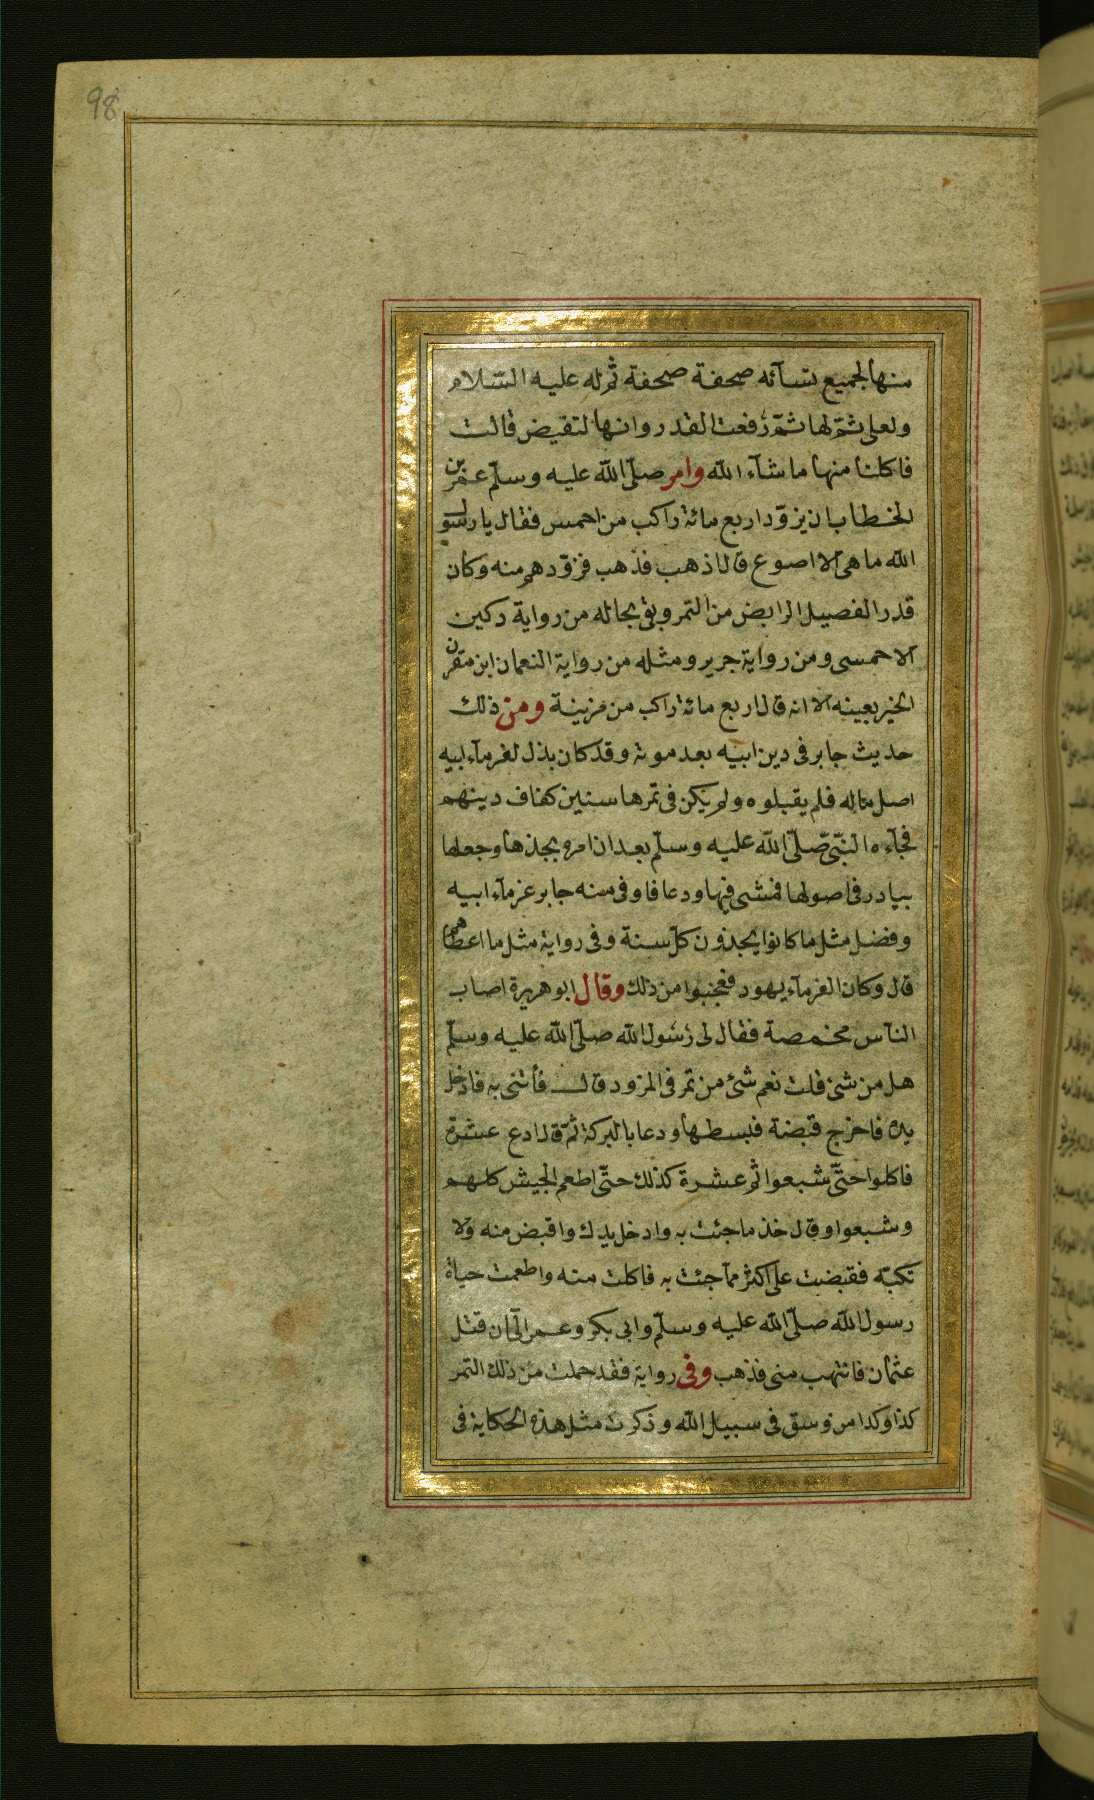 98
منها لجميع نسآئه صحفة صحفة ثم له عليه السّلام
ولعلى ثمّ لها ثمّ رفعت القدر وانها لتفيض قالت
فاكلنا منها ما شآء الله وامر صلّى الله عليه وسلّم عمر بن
الخطاب ان يزوّد اربع مائة راكب من احمس فقال يا رسول
الله ما هى الا اصوع قال اذهب فذهب فزوّدهم منه وكان
قدر الفصيل الرابض من التمر وبقى بحاله من رواية دكين
الاحمسى ومن رواية جرير ومثله من رواية النعمان ابن مقرن
الخبر بعينه الا انه قال اربع مائة راكب من مزينة ومن ذلك
حديث جابر فى دين ابيه بعد موته وقد كان بذل لغرمآء ابيه
اصل ماله فلم يقبلوه ولم يكن فى ثمرها سنين كفاف دينهم
فجآءه النّبىّ صلّى الله عليه وسلّم بعد ان امره بجذها وجعلها
بيادر فى اصولها فمشى فيها ودعا فاوفى منه جابر غرمآء ابيه
وفضل مثل ما كانوا يجذون كلّ سنة وفى رواية مثل ما اعطاهم
قال وكان الغرمآء يهود فعجبوا من ذلك وقال ابو هريرة اصاب
النآس مخمصة فقال لى رسول الله صلّى الله عليه وسلّم
هل من شئ قلت نعم شئ من تمر فى المزود قال فأتنى به فادخل
يده فاخرج قبضة فبسطها ودعا بالبركة ثمّ قال ادع عشرة
فاكلوا حتّى شبعوا ثم عشرة كذلك حتّى اطعم الجيش كلهم
وشبعوا وقال خذ ما جئت به وادخل يدك واقبض منه ولا
تكبّه فقبضت على اكثر ممآ جئت به فاكلت منه واطعمت حياة
رسول الله صلّى الله عليه وسلّم وابى بكر وعمر الى ان قتل
عثمان فانتهب منى فذهب وفى رواية فقد حملت من ذلك التمر
كذا وكذا من وسق فى سبيل الله وذكرت مثل هذه الحكاية فى